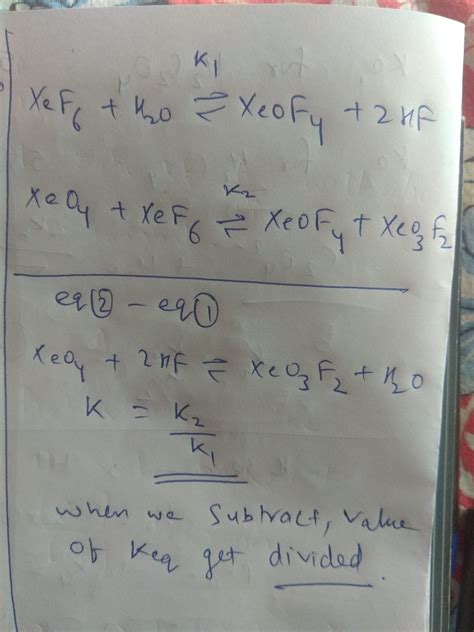 K₁
XeF₆ + H₂O ⇌ XeOF₄ + 2HF
K₂
XeO₄ + XeF₆ ⇌ XeOF₄ + XeO₃F₂
eq② - eq①
XeO₄ + 2HF ⇌ XeO₃F₂ + H₂O
K = K₂
K₁
when we subtract, value
of Keq get divided.